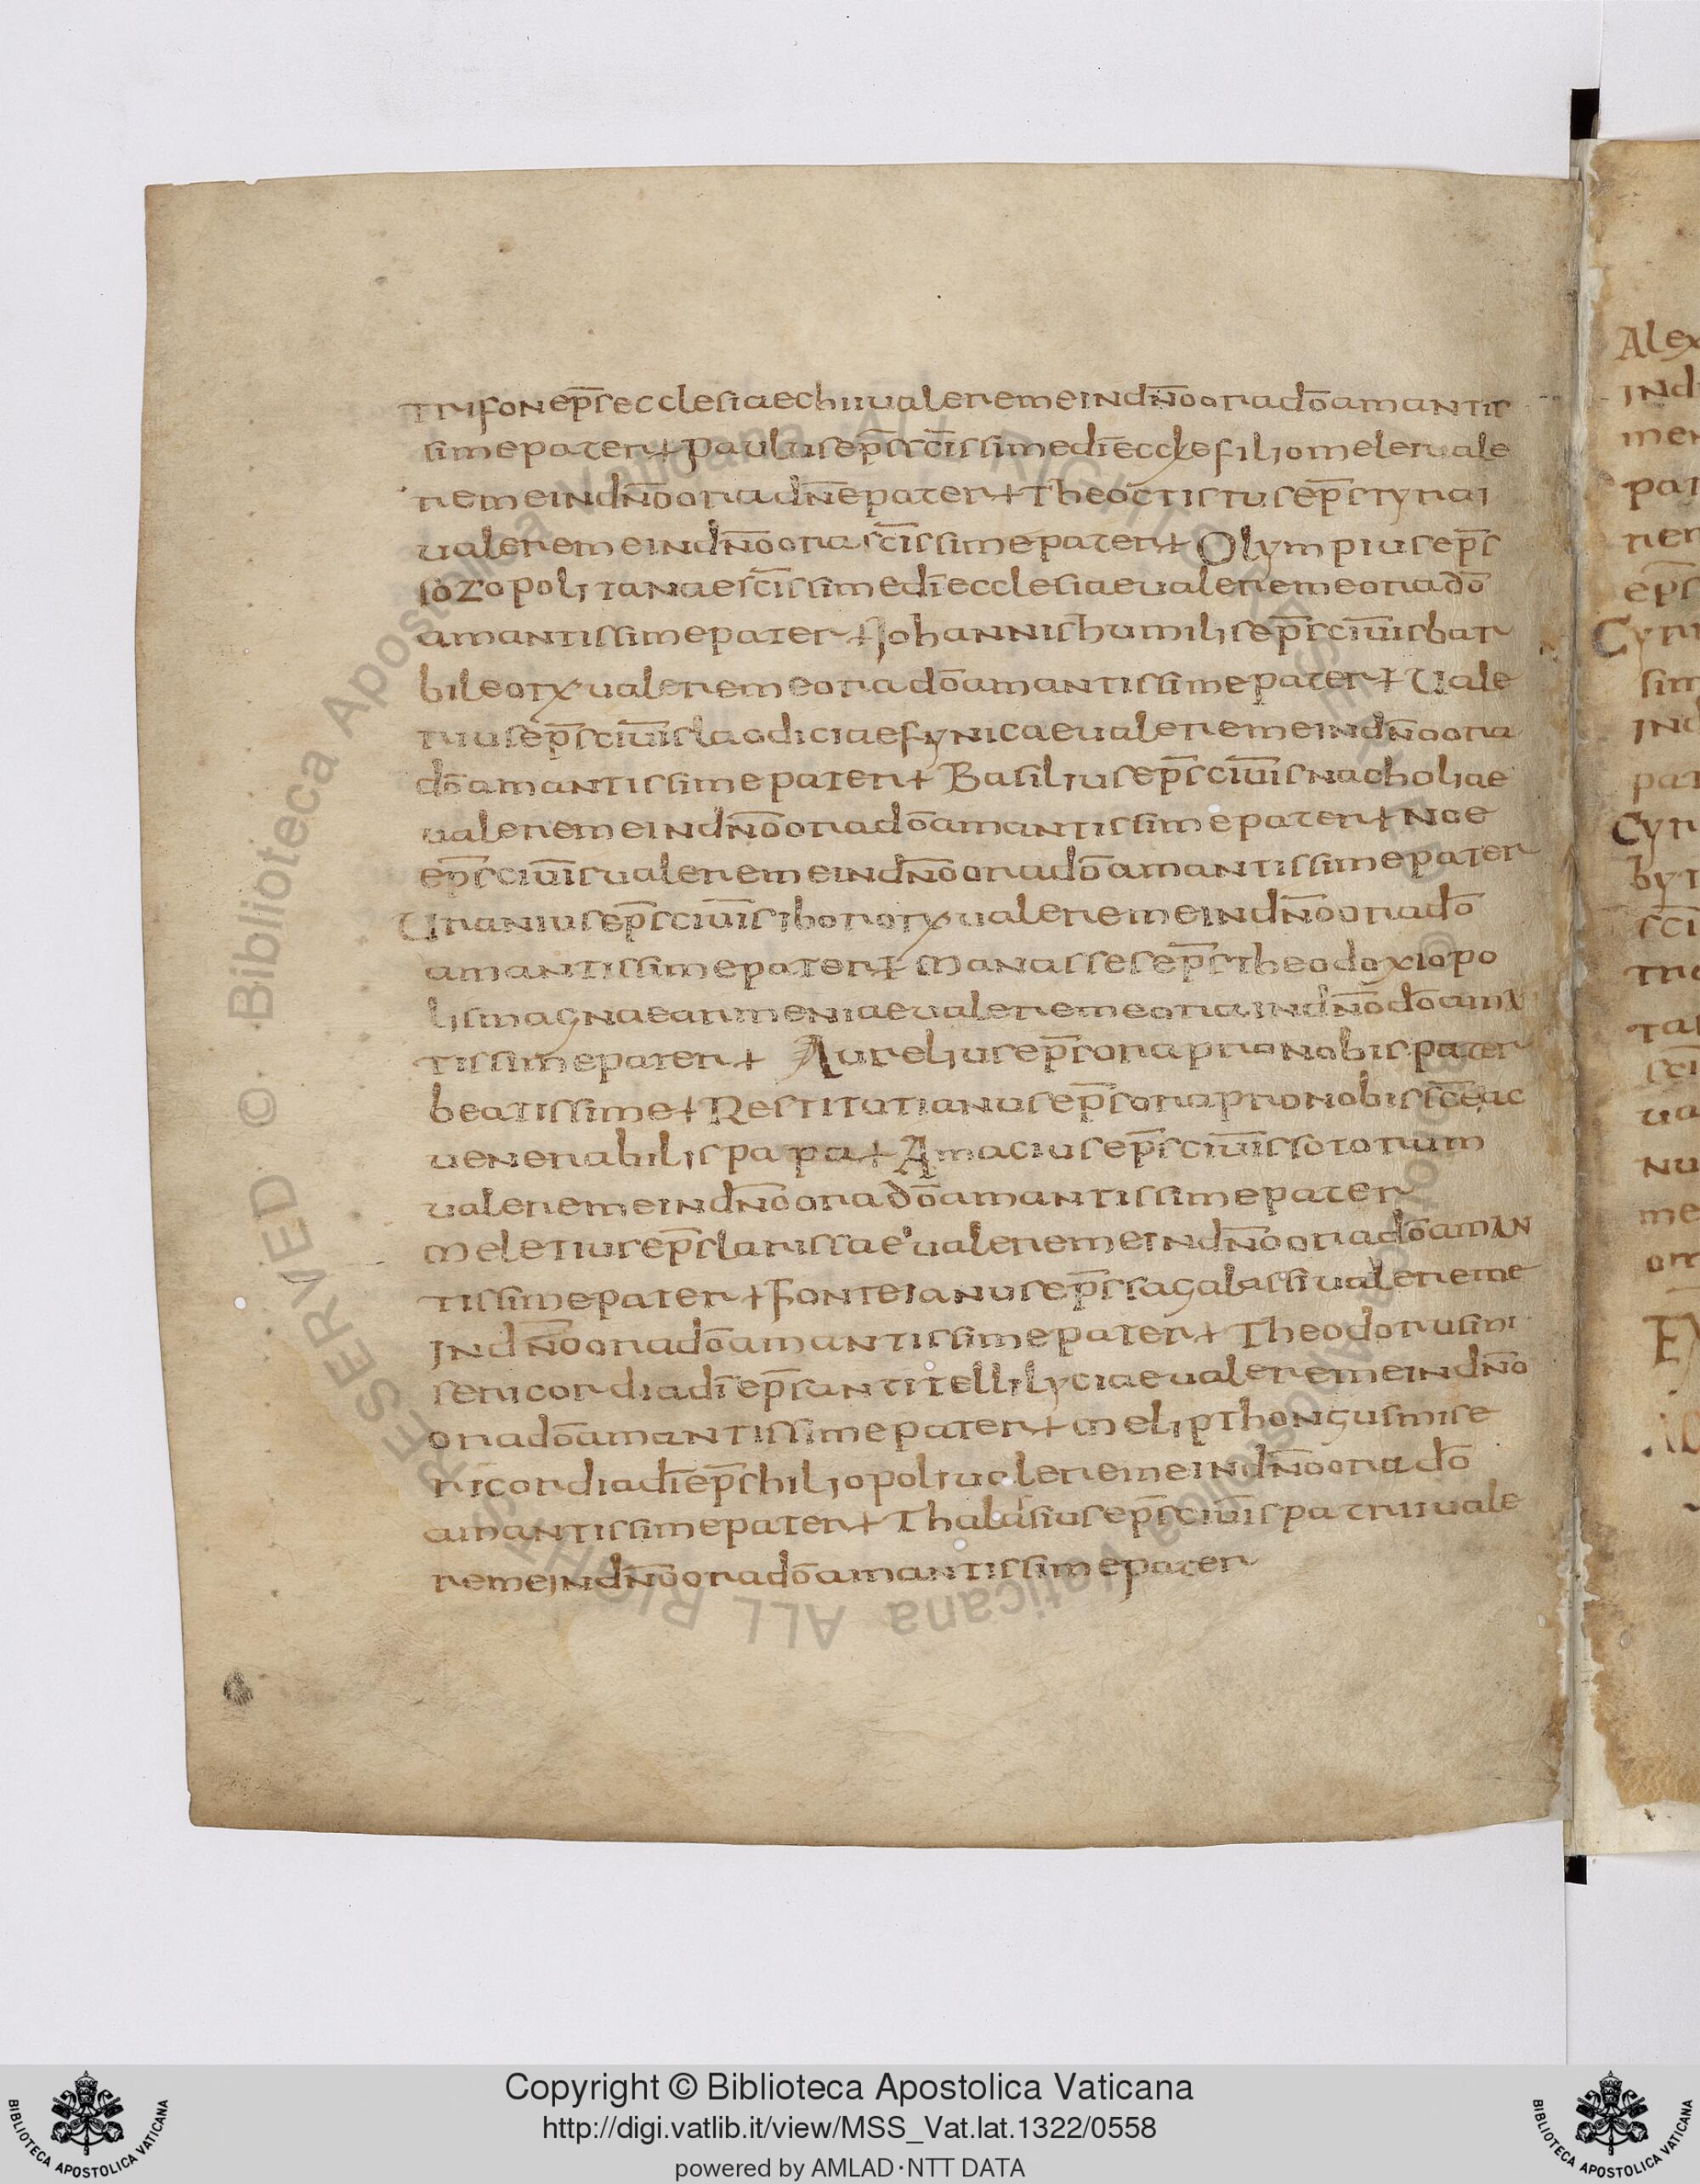 trifon ep̄s ecclesiae chii uale reme in dn̄o ora dō amantis
sime pater + paulus ep̄s sc̄issime dī eccle filiomeler uale
reme in dn̄o ora dn̄e pater + Theoctistus ep̄s tyrai
uale reme in dn̄o ora sc̄issime pater + Olympius ep̄s
sozopolitanae sc̄issime dī ecclesiae uale reme ora dō
amantissime pater + Johannis humilis ep̄s ciūis bar
bileorx uale reme ora dō amantissime pater + Uale
rius ep̄s ciūis laodiciae fynicae uale reme in dn̄o ora
dō amantissime pater + Basilius ep̄s ciūis nacholiae
uale reme in dn̄o ora dō amantissime pater + Noe
ep̄s ciūis uale reme in dn̄o ora dō amantissime pater
Uranius ep̄s ciūis ibororx uale reme in dn̄o ora dō
amantissime pater + Manasses ep̄s theodoxiopo
lis magnae armeniae uale reme ora in dn̄o dō aman
tissime pater + Aurelius ep̄s ora pro nobis pater
beatissime + Restitutianus ep̄s ora pro nobis sc̄e ac
uenerabilis papa + Amacius ep̄s ciūis sotorum
uale reme in dn̄o ora dō amantissime pater
Meletius ep̄s larissae uale reme in dn̄o ora dō aman
tissime pater + Fonteianus ep̄s sagalassi uale reme
in dn̄o ora dō amantissime pater + Theodorus mi
sericordia dī ep̄s antitelli lyciae uale reme in dn̄o
ora dō amantissime pater + Melipthongus mise
ricordia dī ep̄s hiliopoli uale reme in dn̄o ora dō
amantissime pater + Thalasius ep̄s ciūis patrii uale
reme in dn̄o ora dō amantissime pater
Copyright © Biblioteca Apostolica Vaticana
http://digi.vatlib.it/view/MSS_Vat.lat.1322/0558
powered by AMLAD·NTT DATA